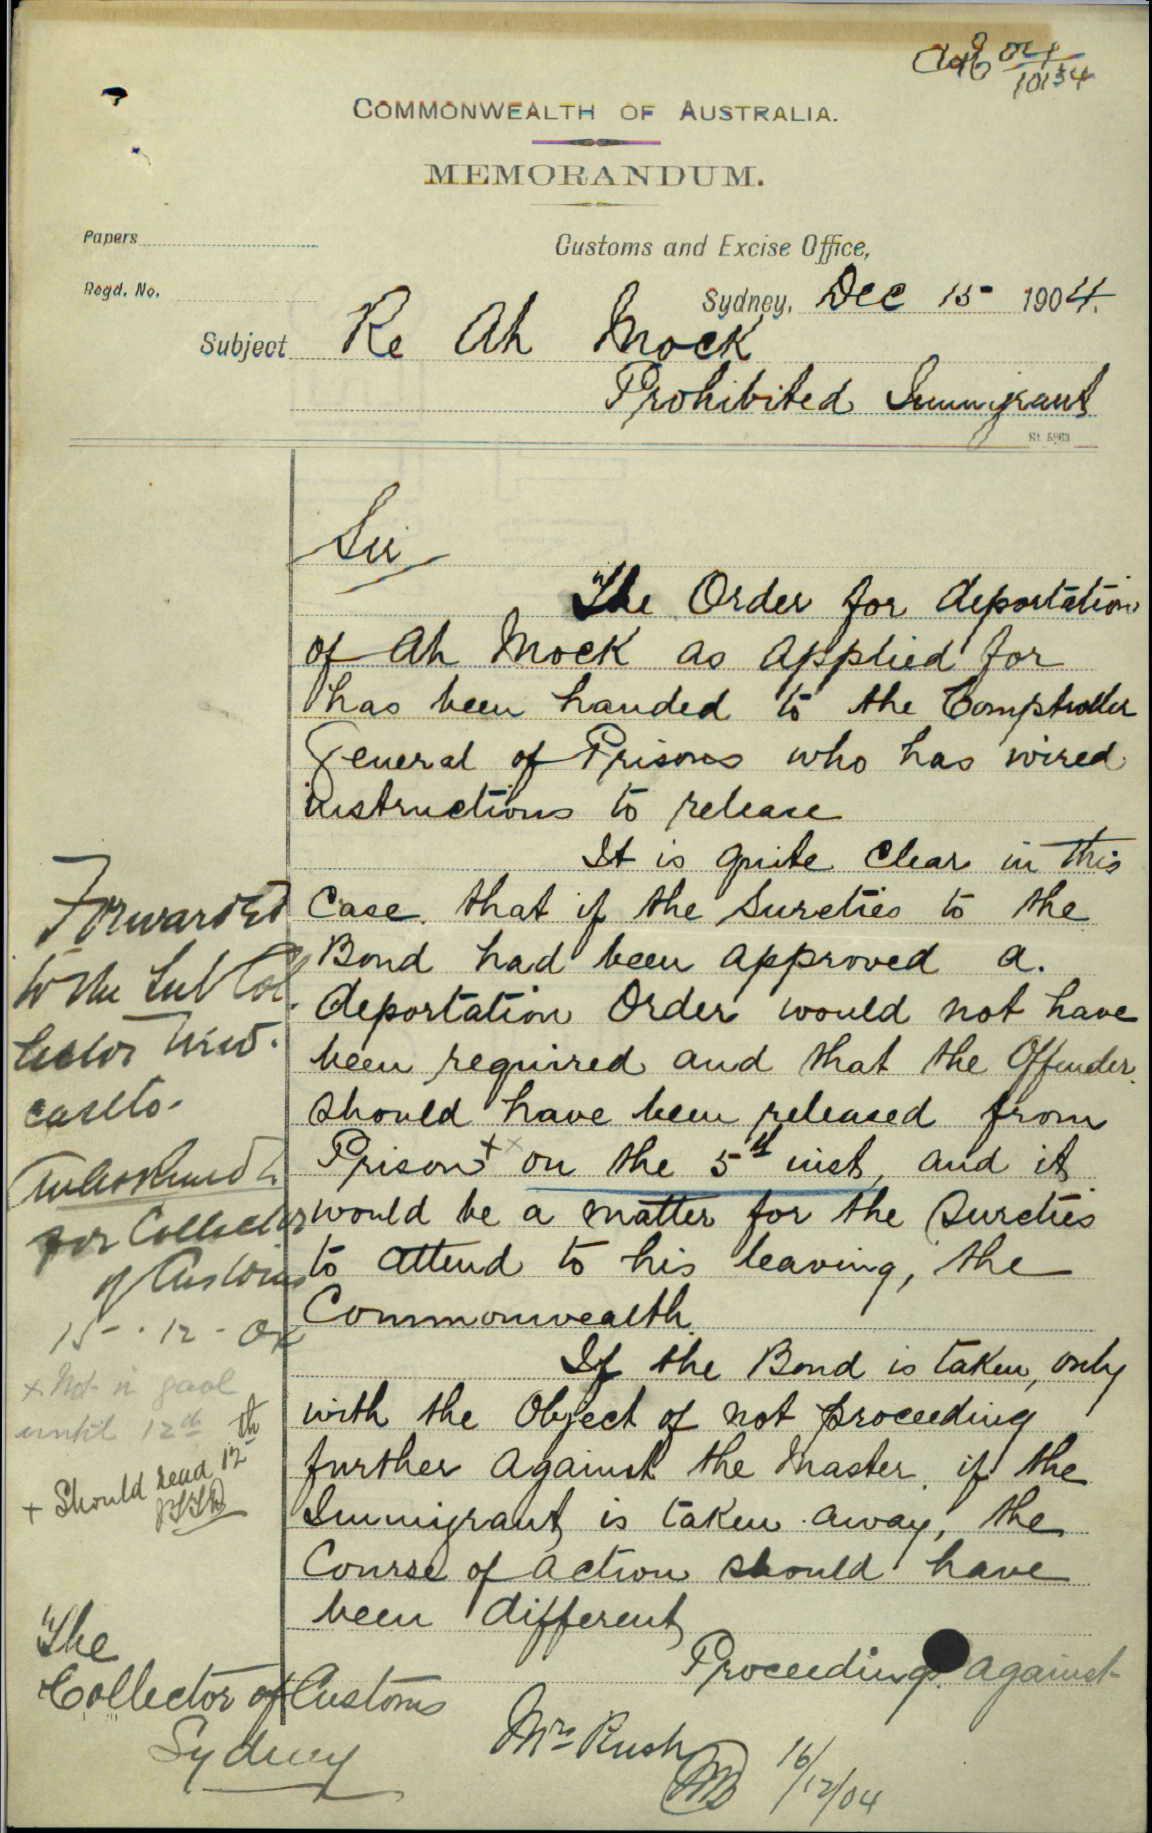 04/10134
COMMONWEALTH OF AUSTRALIA.
MEMORANDUM.
Papers
Customs and Excise Office,
Regd. No.
Sydney, Dec 15 1904.
Subject Re Ah Mock
Prohibited Immigrant
St. 5963
Sir
The Order for deportation
of Ah Mock as applied for
has been handed to the Comptroller
General of Prisons who has wired
instructions to release
It is quite clear in this
Case that if the Sureties to the
Bond had been approved a
deportation Order would not have
been required and that the Offender
should have been released from
Prison + x on the 5th inst, and it
would be a matter for the Sureties
to attend to his leaving, the
Commonwealth
If the Bond is taken, only
with the Object of not proceeding
further against the Master if the
Immigrant is taken away, the
Course of action should have
been different
Proceedings against
Forwarded
to the Sub Col-
lector New-
castle.
for Collector
of Customs
15 - 12 - 04
x Not in gaol
until 12th
+ Should read 12th
The
Collector of Customs
Sydney
Mr Rush
16/12/04